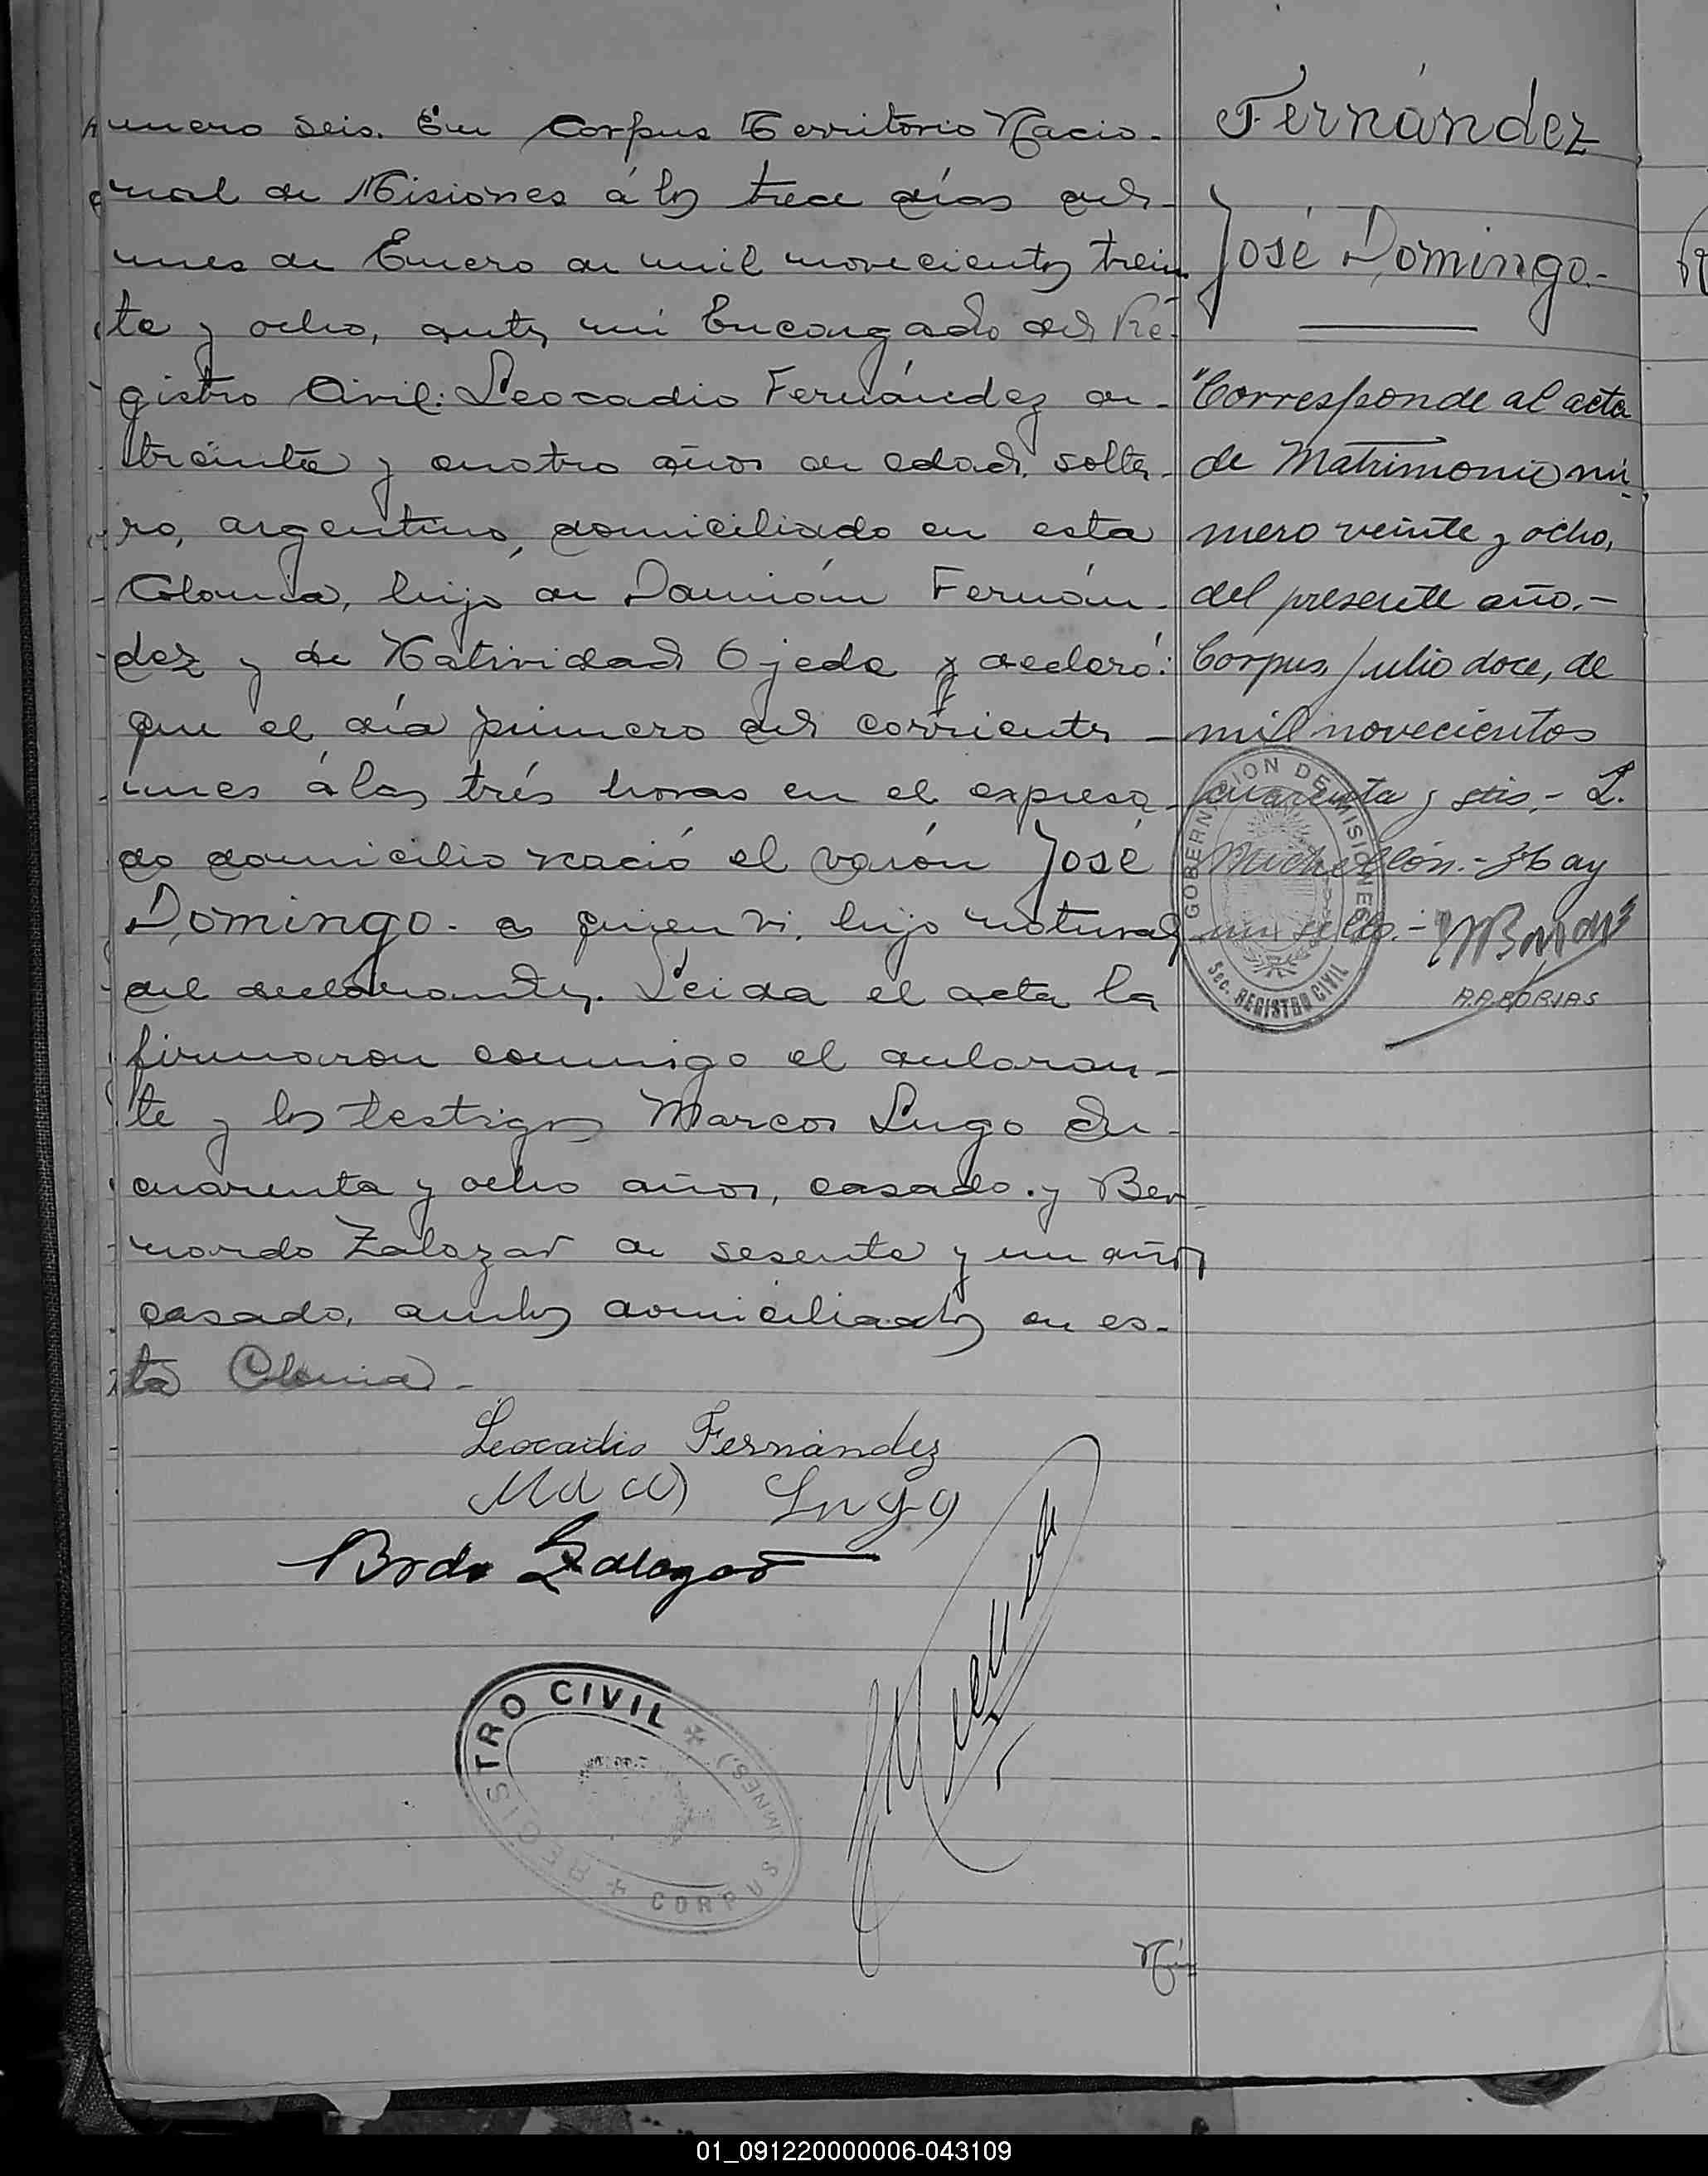 numero seis. En Corpus Territorio Nacio-
nal de Misiones á los trece días del
mes de Enero de mil novecientos trein
ta y ocho, ante mi Encargado del Re-
gistro Civil: Leocadio Fernández de
treinta y cuatro años de edad, solte-
ro, argentino, domiciliado en esta
Colonia, hijo de Damián Fernán-
dez y de Natividad Ojeda y declaró:
que el día primero del corriente
mes á las trés horas en el expresa-
do domicilio nació el varón José
Domingo. a quien vi, hijo natural
del declarante. Leida el acta la
firmaron conmigo el declaran-
te y los testigos Marcos Lugo de
cuarenta y ocho años, casado. y Ber
nardo Zalazar de sesenta y un años
casado, ambos domiciliados en es-
ta Colonia-
Leocadio Fernández
Marcos Lugo
Brdo Zalazar
REGISTRO CIVIL
CORPUS (MNES)
Fernández
José Domingo.-
"Corresponde al acta
de Matrimonio nú-
mero veinte y ocho,
del presente año.-
Corpus, Julio doce, de
mil novecientos
cuarenta y seis.- L.
Michellón.- Hay
un sello.-
GOBERNACION DE MISIONES
Sec. REGISTRO CIVIL
01_091220000006-043109